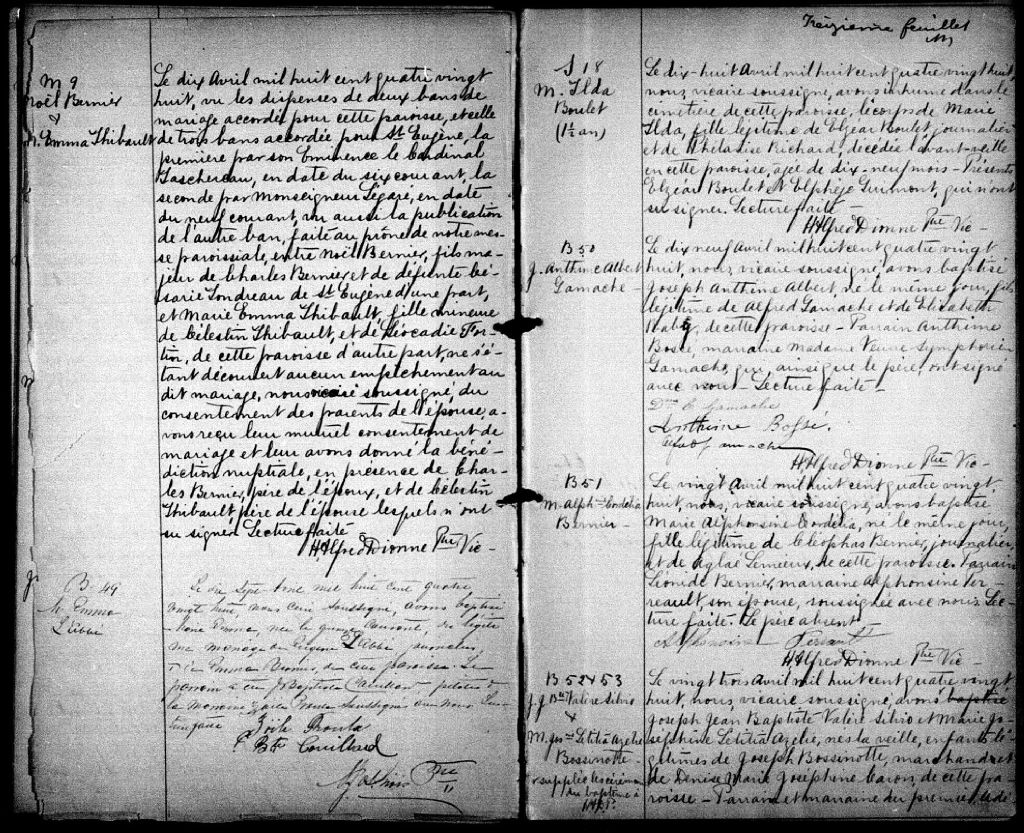 M 9
Noël Bernier
&
M. Emma Thibault
Le dix Avril mil huit cent quatre vingt
huit, vu les dispenses de deux bans de
mariage accordée pour cette paroisse, et celle
de trois bans accordée pour St Eugène, la
première par son Eminence le Cardinal
Taschereau, en date du six courant, la
seconde par Monseigneur Légaré, en date
du neuf courant, vu aussi la publication
de l'autre ban, faite au prône de notre mes-
se paroissiale, entre Noël Bernier, fils ma-
jeur de Charles Bernier et de défunte Cé-
sarie Tondreau de St Eugène d'une part,
et Marie Emma Thibault, fille mineure
de Célestin Thibault, et de Léocadie For-
tin, de cette paroisse d'autre part, ne s'é-
tant découvert aucun empêchement au
dit mariage, nous vicaire soussigné, du
consentement des parents de l'épouse, a-
vons reçu leur mutuel consentement de
mariage et leur avons donné la béné-
diction nuptiale, en présence de Char-
les Bernier, père de l'époux, et de Célestin
Thibault père de l'épouse lesquels n'ont
su signer. Lecture faite
H Alfred Dionne Ptre Vic-
B. 49
M. Emma
Labbé
Le dix Sept Avril mil huit cent quatre
vingt huit, nous curé soussigné, avons baptisé
Marie Emma, née le quinze courant, du légitime
mariage de Eugène Labbé journalier,
Emma Bernier, de cette paroisse. Le
parrain a été JBaptiste Couillard pilote
la marraine soussignée avec nous Lec-
ture faite
Zoïle Proulx
Bte Couillard
Ptre
Treizième feuillet
S 18
M. Ilda
Boulet
(1½ an)
Le dix-huit Avril mil huit cent quatre vingt huit,
nous, vicaire soussigné, avons inhumé dans le
cimetière de cette paroisse, le corps de Marie
Ilda, fille légitime de Elzéar Boulet, journalier
et de Philaïse Richard, décédée l'avant-veille
en cette paroisse, âgée de dix-neuf mois - Présents
Elzéar Boulet et Elphège Guimont, qui n'ont
su signer. Lecture faite -
H Alfred Dionne Ptre Vic-
B 50
J. Anthime Albert
Gamache -
Le dix neuf Avril mil huit cent quatre vingt
huit, nous, vicaire soussigné, avons baptisé
Joseph Anthime Albert, né le même jour, fils
légitime de Alfred Gamache et de Elizabeth
de cette paroisse - Parrain Anthime
Bossé, marraine Madame Veuve Symphorien
Gamache, qui, ainsi que le père, ont signé
avec nous - Lecture faite -
Dme E Gamache
Anthime Bossé.
Alfred Gamache
H Alfred Dionne Ptre Vic -
B 51
M. Alphsine Cordélia
Bernier -
Le vingt Avril mil huit cent quatre vingt
huit, nous, vicaire soussigné, avons baptisé
Marie Alphonsine Cordélia, née le même jour,
fille légitime de Cléophas Bernier, journalier,
et de Aglaé Lemieux, de cette paroisse. Parrain
Léonide Bernier, marraine Alphonsine Per-
reault, son épouse, soussignée avec nous. Lec-
ture faite. Le père absent -
Alphonsine Perault
H Alfred Dionne Ptre Vic -
B 52 & 53
J. J. Bte Valère Silvio
&
M. Jos. Letitia Azélie
Bossinotte -
supplée les cérémonies
du baptême à
Le vingt trois Avril mil huit cent quatre vingt
huit, nous, vicaire soussigné, avons baptisé
Joseph Jean Baptiste Valère Silvio et Marie Jo-
sephine Letitia Azélie, nés la veille, enfants lé-
gitimes de Joseph Bossinotte, marchand et
de Denise Marie Joséphine Caron, de cette pa-
roisse - Parrain et marraine du premier,